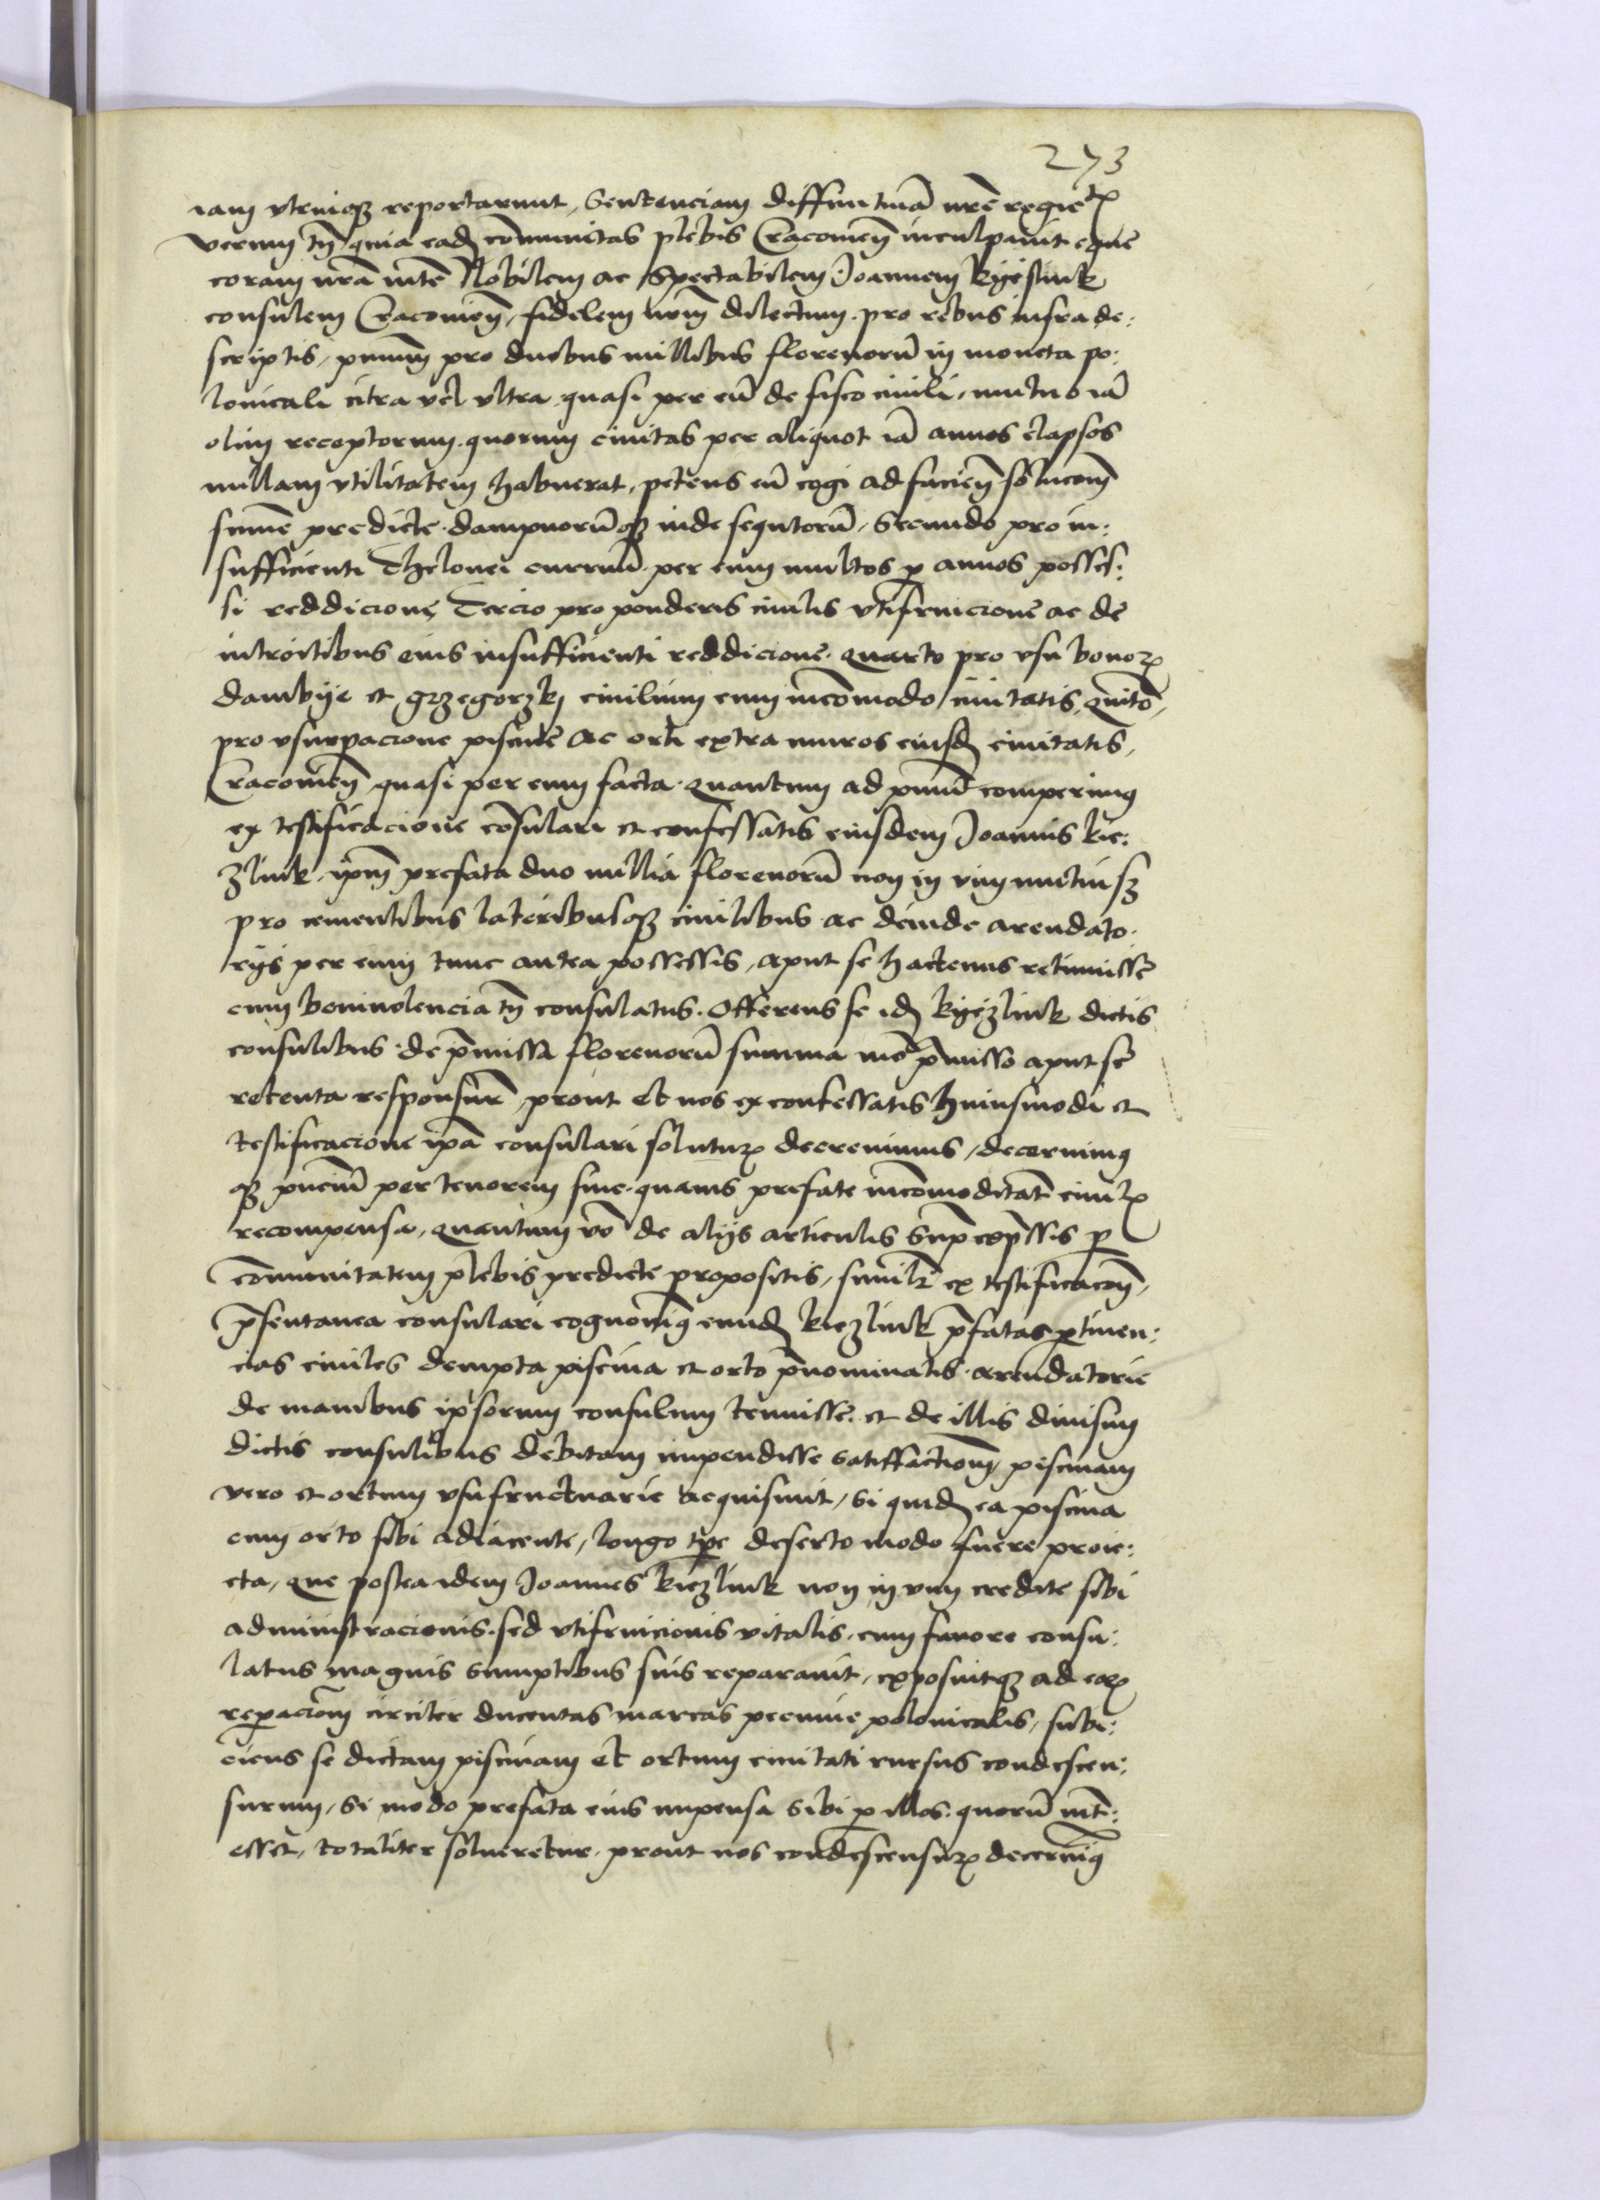 273
iam vtruiqꝫ reportarunt, Sentenciam diffinitiuā nrē regie
verum tn̄ quia eadē cōmunitas plebis Cracouien̄ inculpauit
coram nrā mte Nobilem ac Spectabilem Joannem kyeslink
consulem Cracouien̄, fidelem nrm̄ dilectum, pro rebus infra de:
scriptis, primum pro duobus millibus florenorū in moneta po:
lonicali citra vel vltra, quasi per eū de fisco ciuili, mutuo iā
olim receptorum, quorum ciuitas per aliquot iā annos elapsos
nullam vtilitatem habuerat, petens eū cogi ad facien̄ solucōm
summe predicte dampnorūqꝫ inde sequtorū, Secundo pro in:
sufficienti Thelonei curruū per eum multos p annos posses:
si reddicione, Tercio pro ponderis ciuilis vtifruicione ac de
introitibus eius insufficienti reddicione, quarto pro vsu bonorꝫ
dambye et grzegorzky ciuilium cum incōmodo ciuitatis, Quito,
pro vsurpacione piscine ac orti extra muros eiusdē ciuitatis,
Cracouien̄ quasi per eum facta, Quantum ad primū comperimꝰ
ex testificacione cōsulari et confessatis eiusdem Joannis kie:
zlink, ipm̄ prefata duo millia florenorū non in vim mutui sꝫ
pro cementibus lateribusqꝫ ciuilibus ac deinde arendato:
rijs per eum tunc antea possessis, aput se hactenus retinuisse
cum beniuolencia tn̄ consulatus, Offerens se idē kyezlink dictis
consulibus de p̄missa florenorū summa mō p̄misso aput se
retenta responsur̄, prout et nos ex confessatis huiusmodi et
testificacione ipā consulari soluturꝫ decreuimus, decernimꝰ
qꝫ pn̄ciū per tenorem sine quauis prefate incōmoditatē ciuilꝫ
recompensa, quantum vō de alijs articulis sup̄expssis p
cōmunitatem plebis predicte propositis, similr̄ ex testificacōn̄,
p̄sentanea consulari cognouimꝰ eundē kiezlink p̄fatas ptinen:
cias ciuiles dempta piscina et orto p̄nominatis arendatorie
de manibus ipsorum consulum tenuisse, et de illis diuisim
dictis consulibus debitam impendisse satiffactionem, piscinam
vero et ortum vsufructuarie acquisiuit, si quidē ea piscina
cum orto sibi adiacente, longo tpe deserto modo fuere proie:
cta, que postea idem Joannes kiezlink non in vim credite sibi
administracionis, sed vtifruicionis vitalis, cum fauore consu:
latus magnis sumptibus suis reparauit, exposuitqꝫ ad earꝫ
reparacōm circiter ducentas marcas pecunie polonicalis, subi:
ciens se dictam piscinam et ortum ciuitati rursus condescen:
surum, si modo prefata eius impensa sibi p illos, quorū int̄:
esset, totaliter solueretur, prout nos condescensurꝫ decernimꝰ